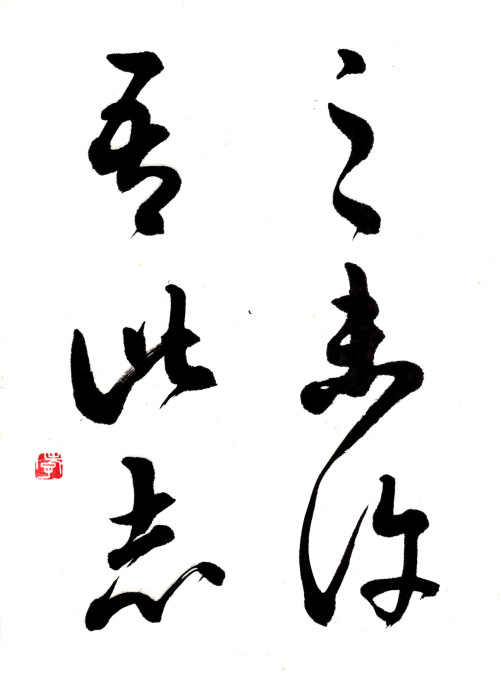 之未許
吾此志